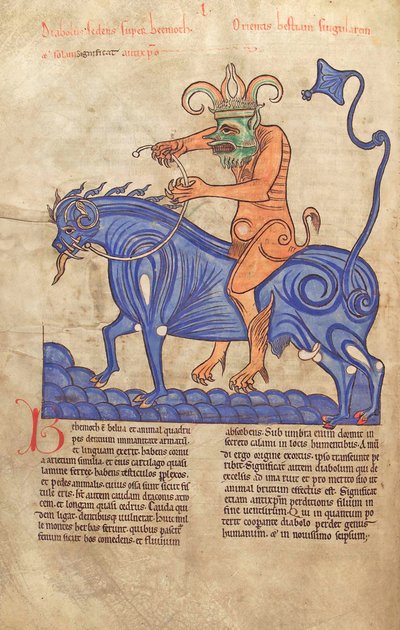 Diabolus sedens super beemoth. Orientis bestiam singularem
& solam Significat antixp̄m
Beemoth ē belua et animal quadru
pes dentium immanitate armatū
et linguam exerit. habens cornu
a arietum similia. et eius cartilago quasi
lamine ferree. habens testiculos
et pedes animalis. cuius ossa sunt sicut fis
tule eris. autem caudam draconis
cem. et longam quasi cedrus. Cauda qui
dem ligat. dentibusque vulnerat. Huic mil
le montes herbas ferunt. quibus pascit
fenum sicut bos comedens. et fluvium
absorbens. Sub umbra enim dormit in
secreto calami in locis humentibus. A
di ergo origine exortus. ipso transeunte
ribit. Significat autem diabolum qui de
excelsis ad ima ruit et pro merito suo ut
animal brutum effectus est. Significat
etiam antixp̄m perditionis filium in
fine venturum. Qui in quantum po
terit cooperante diabolo perdet genus
humanum. & in novissimo seipsum.